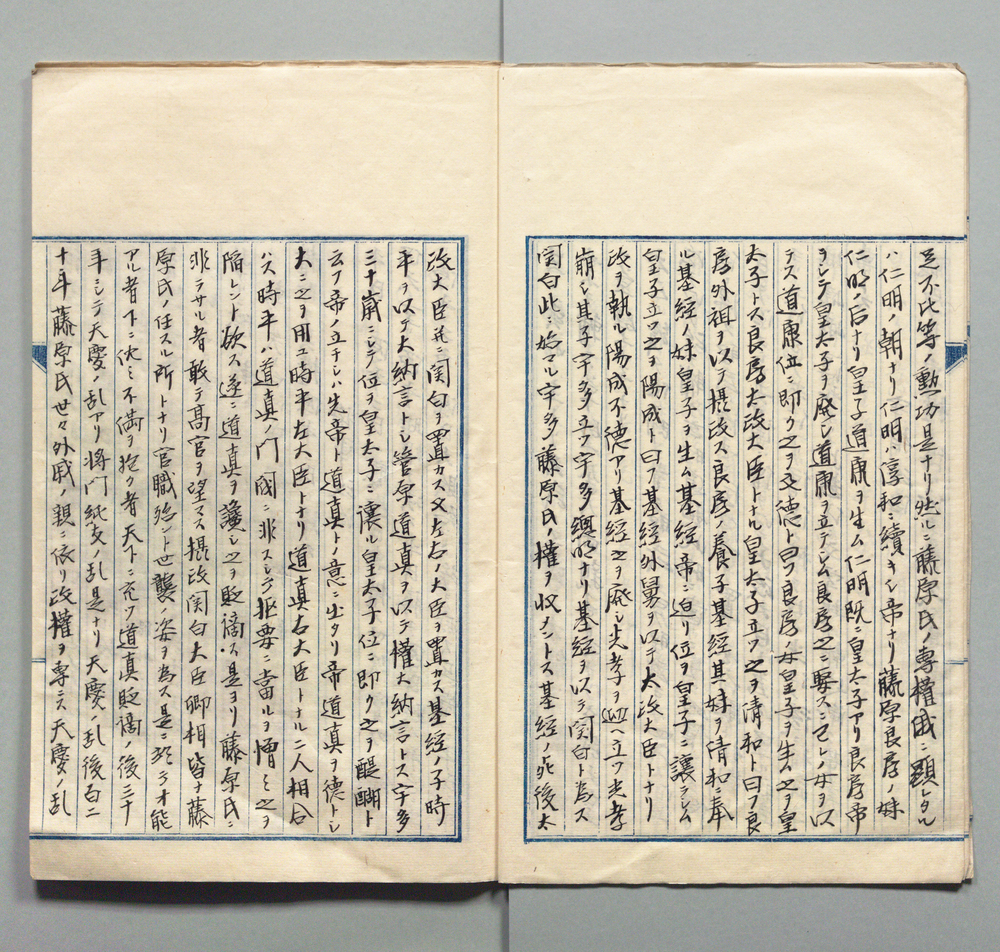 足不比等ノ勲功是ナリ然ルニ藤原氏ノ専權俄ニ顕レタル
ハ仁明ノ朝ナリ仁明ハ淳和ニ續キシ帝ナリ藤原良房ノ妹
仁明ノ后ナリ皇子道康ヲ生ム仁明既ニ皇太子アリ良房帝
ヲシテ皇太子ヲ廃シ道康ヲ立テシム良房之ニ娶スニ己レノ女ヲ以
テス道康位ニ即ク之ヲ文徳ト曰フ良房ノ女皇子ヲ生ム之ヲ皇
太子トス良房太政大臣トナル皇太子立ツ之ヲ清和ト曰フ良
房外祖ヲ以テ摂政ス良房ノ養子基経其妹ヲ清和ニ奉
ル基経ノ妹皇子ヲ生ム基経帝ニ迫リ位ヲ皇子ニ譲ラシム
皇子立ツ之ヲ陽成ト曰フ基経外舅ヲ以テ太政大臣トナリ
政ヲ執ル陽成不徳アリ基経之ヲ廃シ光孝ヲ迎ヘ立ツ光孝
崩シ其子宇多立ツ宇多聰明ナリ基経ヲ以テ関白ト為ス
関白此ニ始マル宇多藤原氏ノ權ヲ收メントス基経ノ死後太
政大臣并ニ関白ヲ置カス又左右ノ大臣ヲ置カス基経ノ子時
平ヲ以テ大納言トシ菅原道真ヲ以テ權大納言トス宇多
三十歳ニシテ位ヲ皇太子ニ讓ル皇太子位ニ即ク之ヲ醍醐ト
云フ帝ノ立チシハ先帝ト道真トノ意ニ出タリ帝道真ヲ徳トシ
大ニ之ヲ用ユ時平左大臣トナリ道真右大臣トナル二人相合
ハス時平ハ道真ノ門閥ニ非スシテ枢要ニ當ルヲ憎ミ之ヲ
陥レント欲ス遂ニ道真ヲ讒シ之ヲ貶謫ス是ヨリ藤原氏ニ
非ラサル者敢テ髙官ヲ望マス摂政関白大臣卿相皆ナ藤
原氏ノ任スル所トナリ官職殆ント世襲ノ姿ヲ為ス是ニ於テオ能
アル者下ニ沈ミ不満ヲ抱ク者天下ニ充ツ道真貶謫ノ後三十
年ニシテ天慶ノ乱アリ将門純友ノ乱是ナリ天慶ノ乱後百二
十年藤原氏世々外戚ノ親ニ依リ政權ヲ専ニス天慶ノ乱